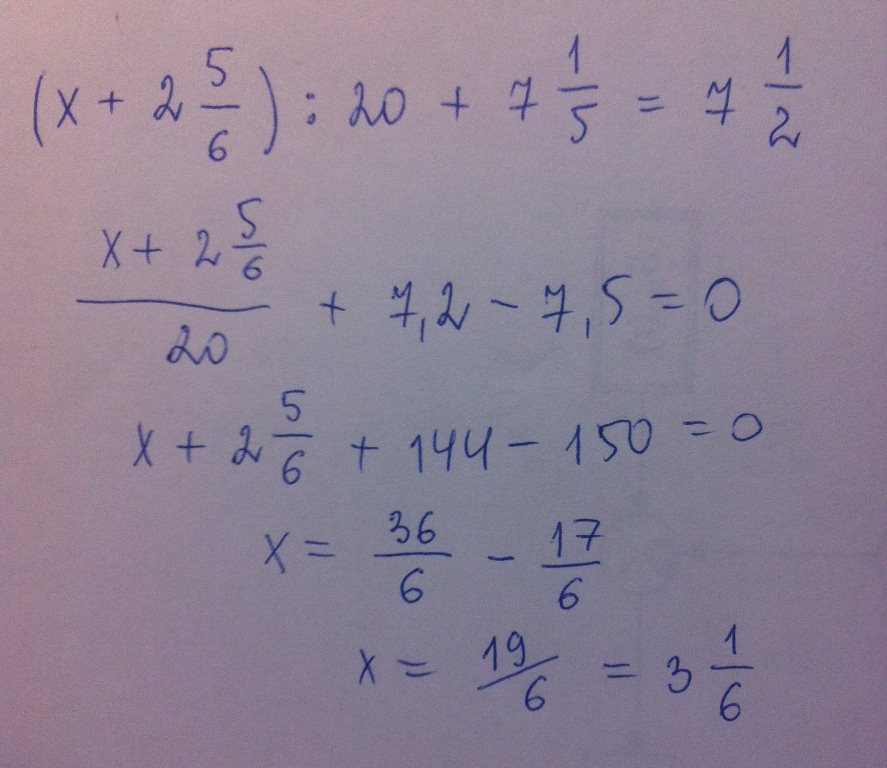 (x + 2 5/6) : 20 + 7 1/5 = 7 1/2
x + 2 5/6 / 20 + 7,2 - 7,5 = 0
x + 2 5/6 + 144 - 150 = 0
x = 36/6 - 17/6
x = 19/6 = 3 1/6